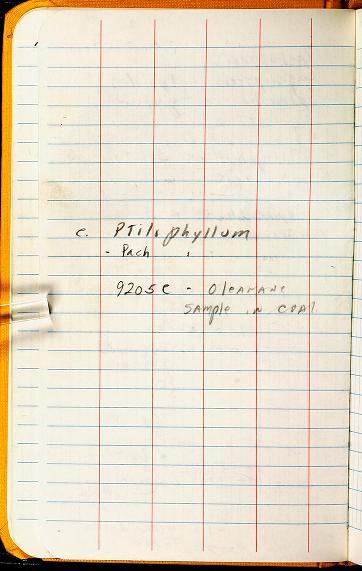 c. Ptilophyllum
- Pach "
9205C - Oleanane
Sample in coal